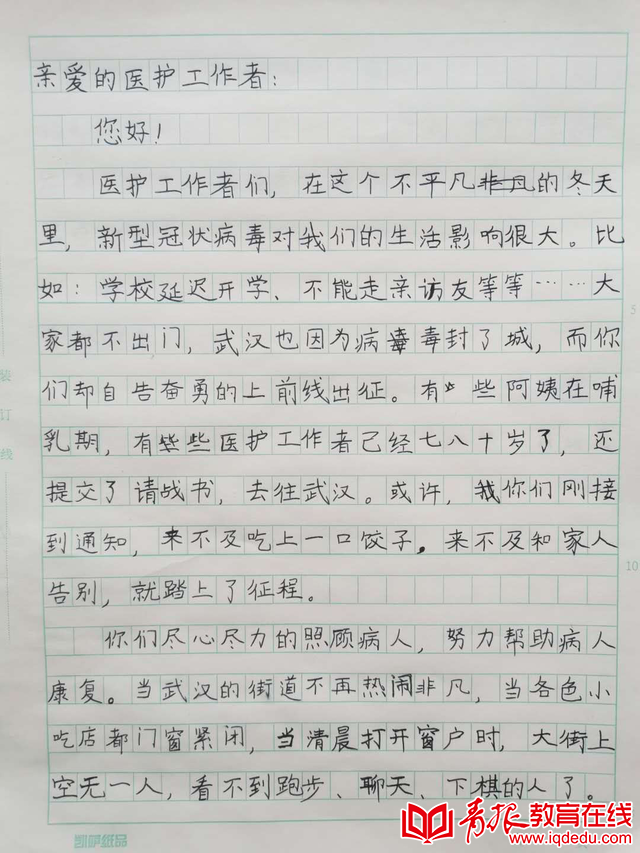 亲爱的医护工作者：
您好！
医护工作者们，在这个不平凡非凡的冬天
里，新型冠状病毒对我们的生活影响很大。比
如：学校延迟开学、不能走亲访友等等……大
家都不出门，武汉也因为病毒毒封了城，而你
们却自告奋勇的上前线出征。有些阿姨在哺
乳期，有些些医护工作者已经七八十岁了，还
提交了请战书，去往武汉。或许，我你们刚接
到通知，来不及吃上一口饺子。来不及和家人
告别，就踏上了征程。
你们尽心尽力的照顾病人，努力帮助病人
康复。当武汉的街道不再热闹非凡，当各色小
吃店都门窗紧闭，当清晨打开窗户时，大街上
空无一人，看不到跑步、聊天、下棋的人了。
装
订
线
5
10
凯萨纸品
青报教育在线
www.iqdedu.com